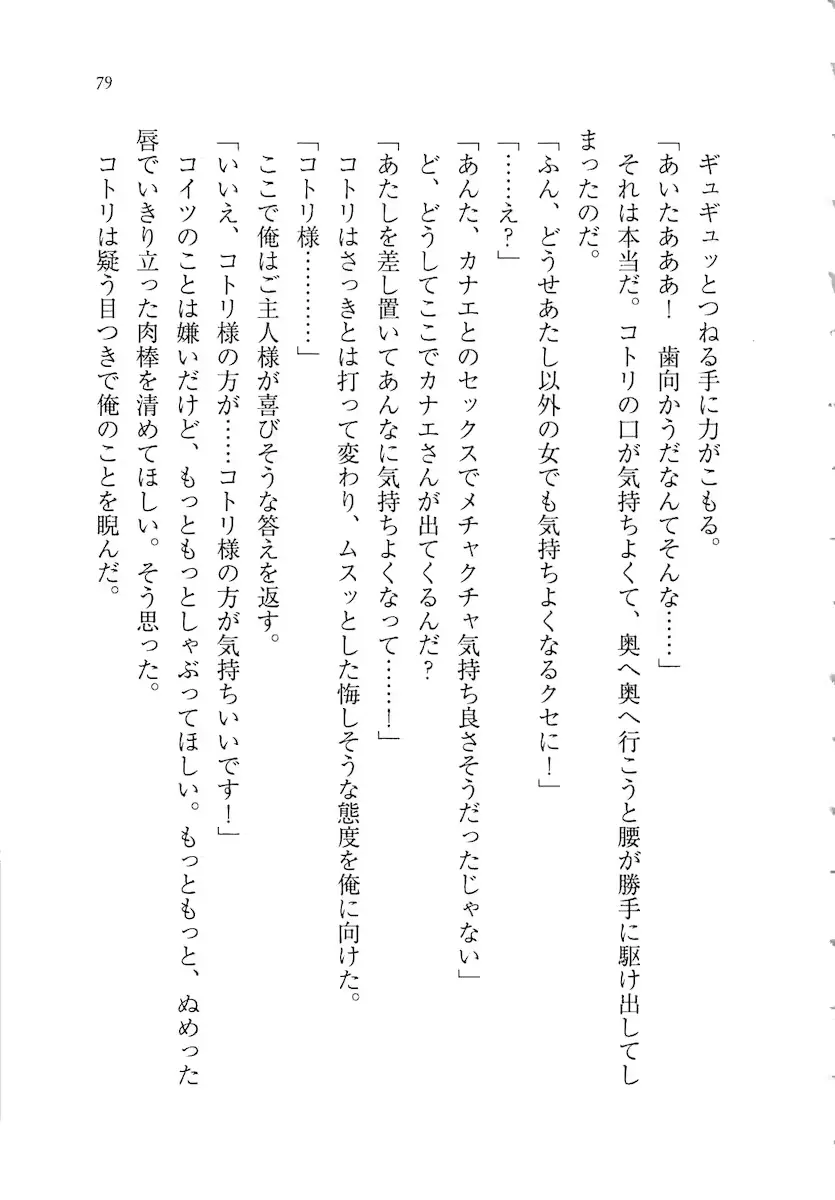 79
ギュギュッとつねる手に力がこもる。
「あいたあああ！　歯向かうだなんてそんな……」
それは本当だ。コトリの口が気持ちよくて、奥へ奥へ行こうと腰が勝手に駆け出してし
まったのだ。
「ふん、どうせあたし以外の女でも気持ちよくなるクセに！」
「……え？」
「あんた、カナエとのセックスでメチャクチャ気持ち良さそうだったじゃない」
ど、どうしてここでカナエさんが出てくるんだ？
「あたしを差し置いてあんなに気持ちよくなって……！」
コトリはさっきとは打って変わり、ムスッとした悔しそうな態度を俺に向けた。
「コトリ様…………」
ここで俺はご主人様が喜びそうな答えを返す。
「いいえ、コトリ様の方が……コトリ様の方が気持ちいいです！」
コイツのことは嫌いだけど、もっともっとしゃぶってほしい。もっともっと、ぬめった
唇でいきり立った肉棒を清めてほしい。そう思った。
コトリは疑う目つきで俺のことを睨んだ。